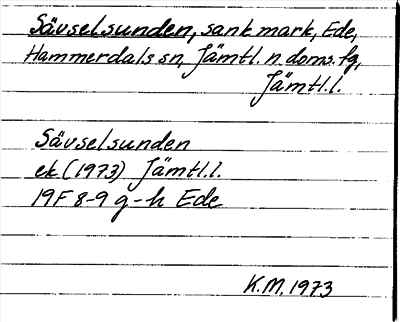 Sävselsunden, sank mark, Ede,
Hammerdals sn, Jämtl. n. doms. fg,
Jämtl.l.
Sävselsunden
ek (1973) Jämtl.l.
19F 8-9 g-h Ede
K.M. 1973